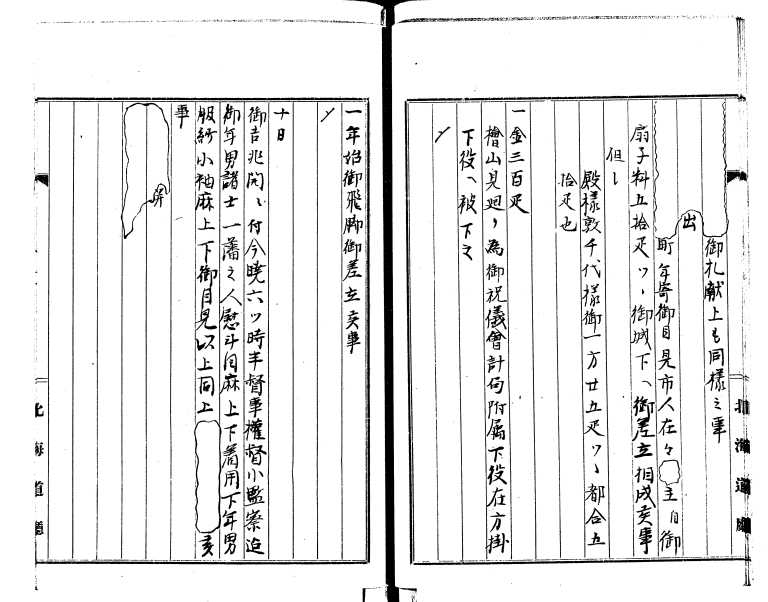 御札献上も同様之事
出
町年寄御目見市人在々
主日御
扇子料五拾疋ツヽ御城下へ御差立相成候事
但し
殿様敦千代様御一方廿五疋ツヽ都合五
拾疋也
一金三百疋
檜山見廻り為御祝儀會計局附属下役在方掛
下役へ被下之
一年始御飛脚御差立候事
十日
御吉兆開ニ付今暁六ツ時半督事權督小監察迄
御年男諸士一藩之人熨斗目麻上下着用下年男
服紗小袖麻上下御目見以上同上
候
事
北海道廳
北海道廳